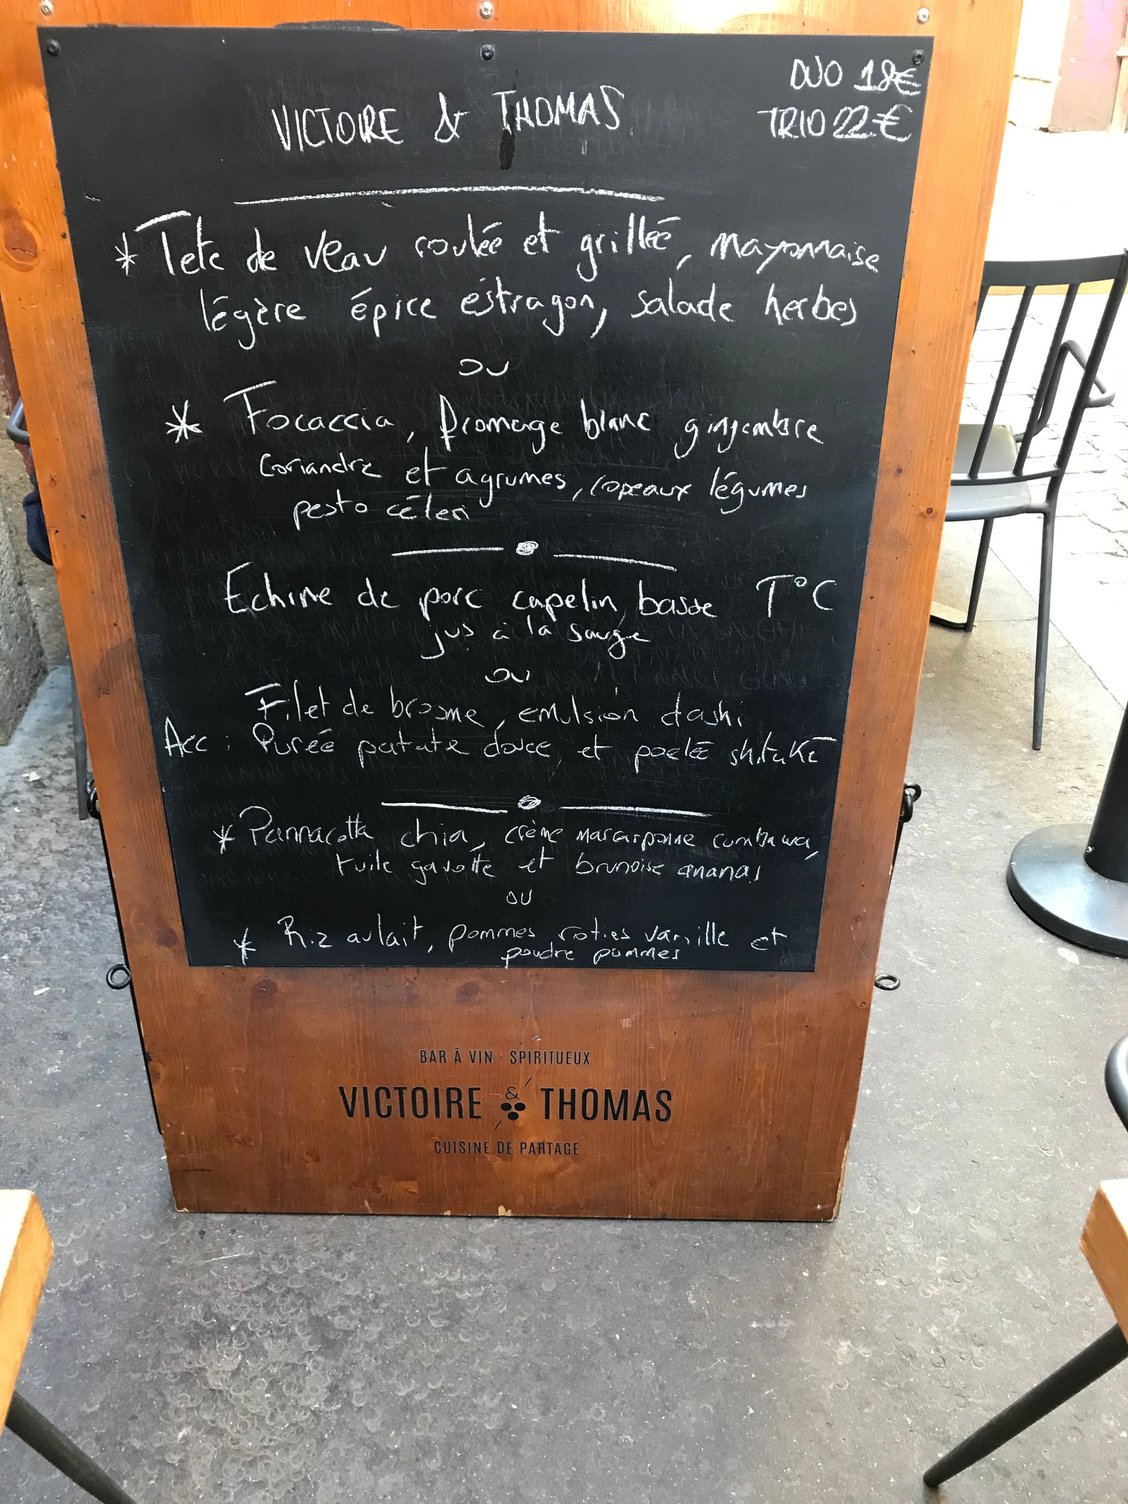 DUO 18€
VICTOIRE & THOMAS
TRIO 22€
* Tete de veau roulée et grillée, mayonnaise
légère épice estragon, salade herbes
ou
* Focaccia, fromage blanc gingembre
Coriandre et agrumes, copeaux légumes
pesto céleri
Echine de porc capelin, basse T°C
jus à la sauge
ou
Filet de brosme, emulsion dashi
Acc : Purée patate douce, et poelé shitaké
* Pannacotta chia, crème mascarponne combawa,
tuile gavotte et brunoise ananas
ou
* Riz au lait, pommes roties vanille et
poudre pommes
BAR À VIN · SPIRITUEUX
VICTOIRE & THOMAS
CUISINE DE PARTAGE